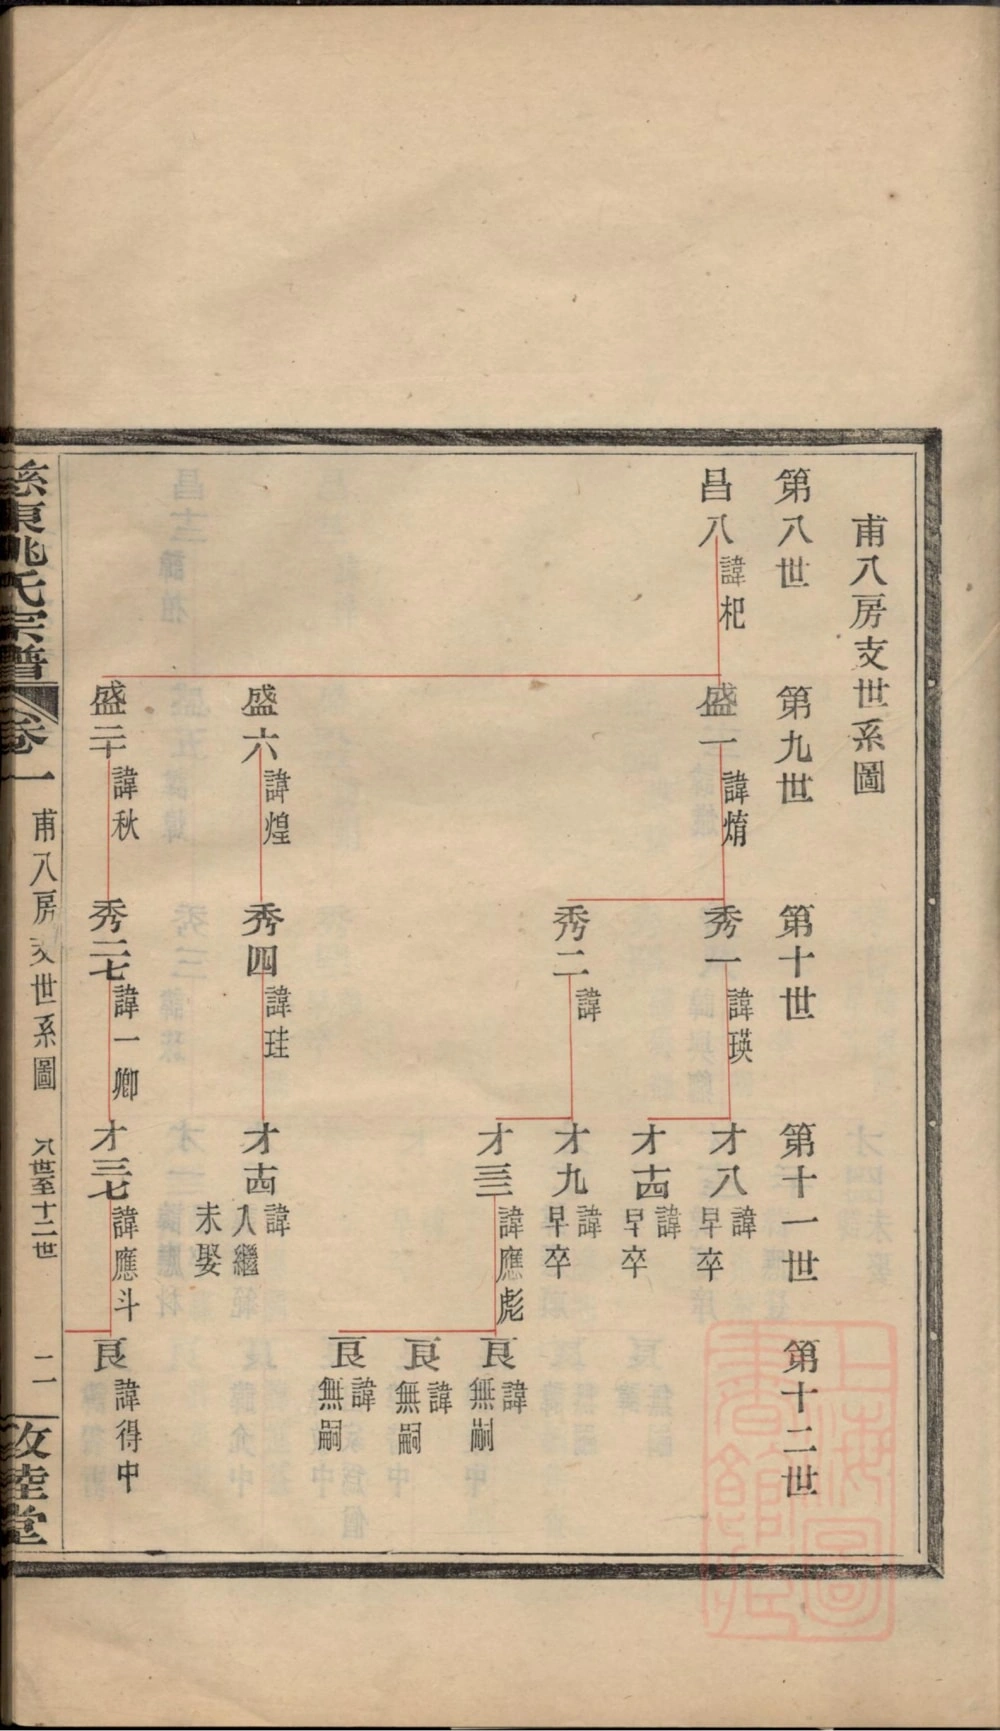 甫八房支世系圖
第八世
第九世
第十世
第十一世
第十二世
昌八 諱杞
盛一 諱烠
秀一 諱瑛
才八 諱 早卒
才十四 諱 早卒
秀二 諱
才九 諱 早卒
才三 諱應彪
良 諱 無嗣
良 諱 無嗣
良 諱 無嗣
盛六 諱煌
秀四 諱珪
才十四 諱 入繼 未娶
盛二十 諱秋
秀二七 諱一卿
才三七 諱應斗
良 諱得中
慈東姚氏宗譜
卷一
甫八房支世系圖
八世至十二世
二
敦睦堂
上海圖書館藏